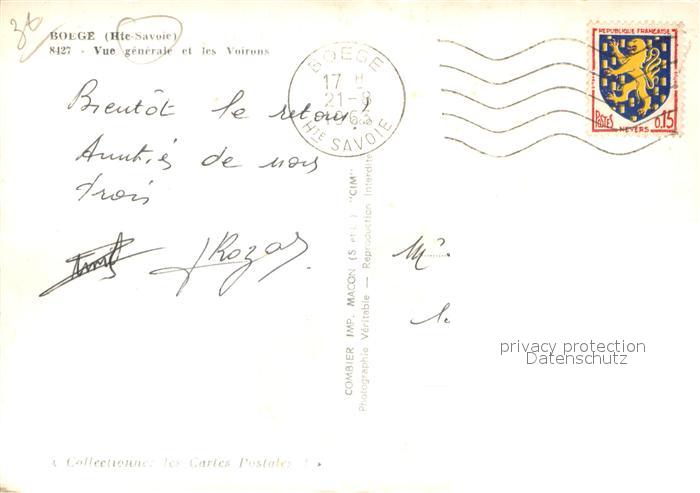 BOEGE (Hte-Savoie)
8427 - Vue générale et les Voirons
Bientôt le retour!
Amitiés de nous
trois
JRozas
BOEGE
17 H
21-8
1963
HTE SAVOIE
REPUBLIQUE FRANÇAISE
POSTES
0,15
NEVERS
COMBIER IMP. MACON (S.-et-L.) "CIM"
Photographie Véritable — Reproduction Interdite
Mr
le
privacy protection
Datenschutz
« Collectionnez les Cartes Postales ! »